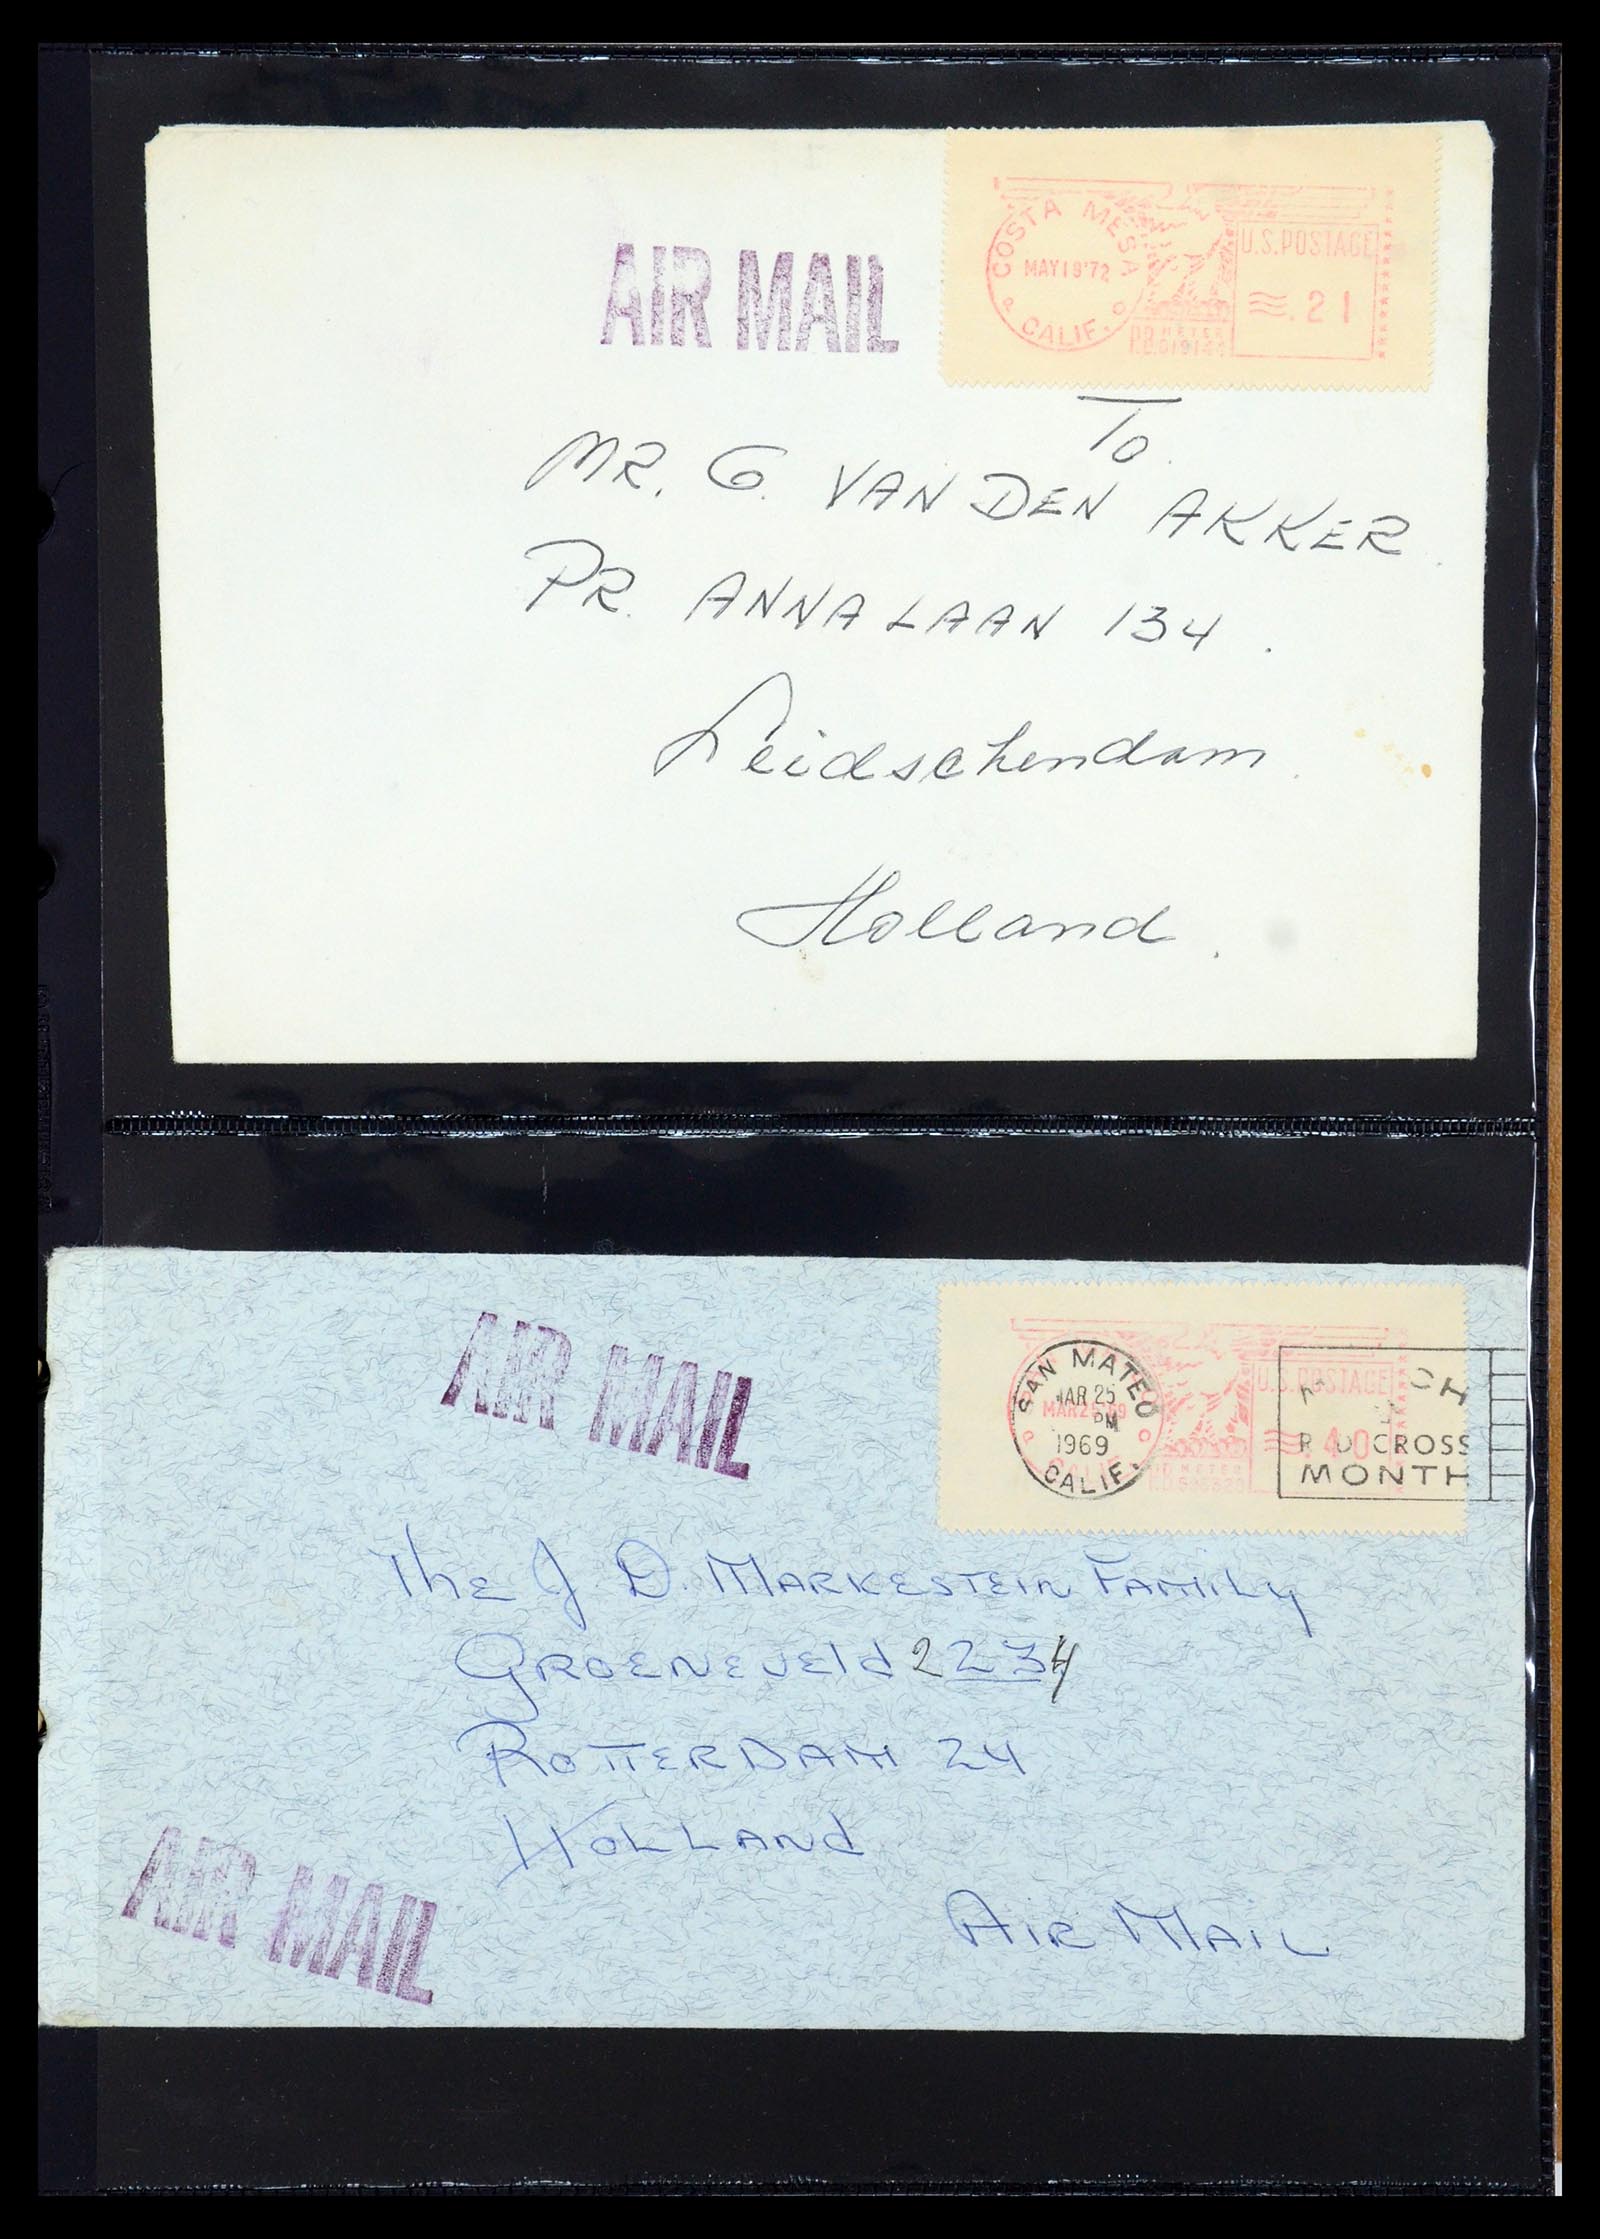 AIR MAIL
COSTA MESA
MAY19'72
CALIF.
U.S.POSTAGE
.21
P.B. METER
To
MR. G. VAN DEN AKKER
PR. ANNA LAAN 134.
Leidschendam.
Holland.
AIR MAIL
SAN MATEO
MAR 25
PM
1969
CALIF.
MAR25'69
U.S.POSTAGE
.40
METER
CROSS
MONTH
The J. D. MARKESTEIN FAMILY
GROENEVELD 2234
ROTTERDAM 24
HOLLAND
AIR MAIL
AIR MAIL